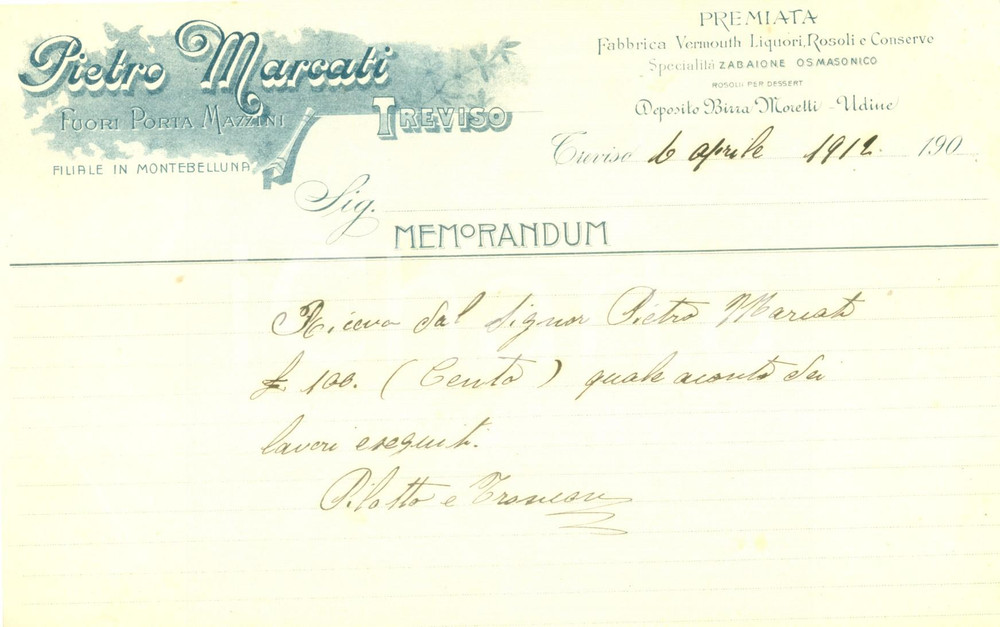 Pietro Marcati
Fuori Porta Mazzini
Treviso
Filiale in Montebelluna
PREMIATA
Fabbrica Vermouth Liquori, Rosoli e Conserve
Specialità ZABAIONE OSMASONICO
ROSOLII PER DESSERT
Deposito Birra Moretti - Udine
Treviso 6 aprile 1912. 190
Sig.
MEMORANDUM
Ricevo dal Signor Pietro Marcati
£ 100. (Cento) quale aconto dei
lavori eseguiti.
Pilotto e